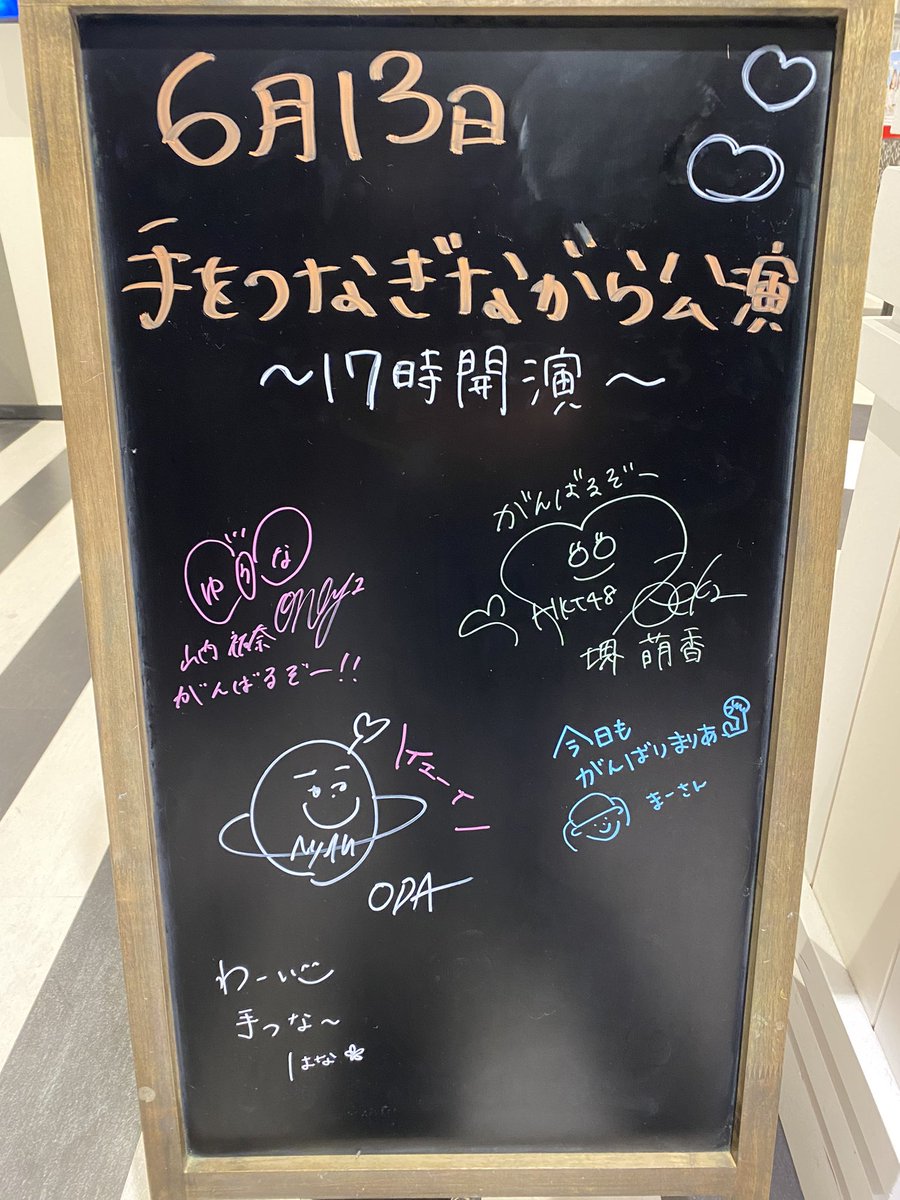 6月13日
手をつなぎながら公演
～17時開演～
ゆうな
山内祐奈
がんばるぞー!!
がんばるぞー
HKT48
堺萌香
今日も
がんばりまりあ
まーさん
イェーイ
ODA
わーい
手つな～
はな